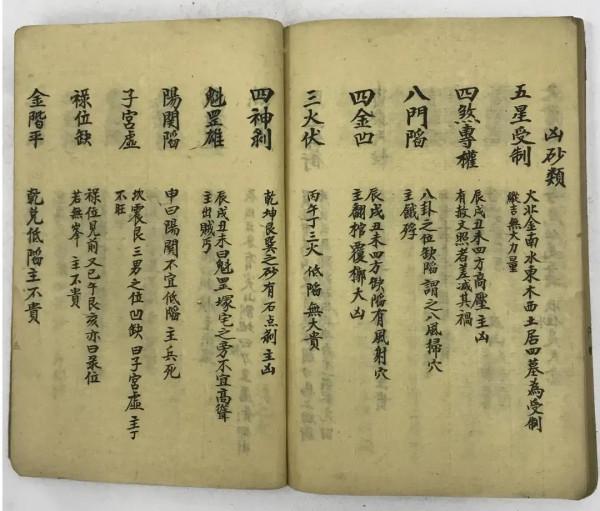 凶砂類
五星受制
火北金南水東木西土居四墓為受制
縱吉無大力量
四煞專權
辰戌丑未四方高壓主凶
有赦文照者差減其禍
八門陷
八卦之位缺陷謂之八風掃穴
主餓殍
四金凹
辰戌丑未四方缺陷有風射穴
主翻棺覆槨大凶
三火伏
丙午丁三火低陷無大貴
四神剎
乾坤艮巽之砂有石点剎主凶
魁罡雄
辰戌丑未曰魁罡塚宅之旁不宜高聳
主出賊丐
陽関陷
申曰陽関不宜低陷主兵死
子宮虛
坎震艮三男之位凹缺曰子宮虛主丁
不旺
祿位缺
祿位見前又巳午艮亥亦曰祿位
若無峯主不貴
金階平
乾兌低陷主不貴